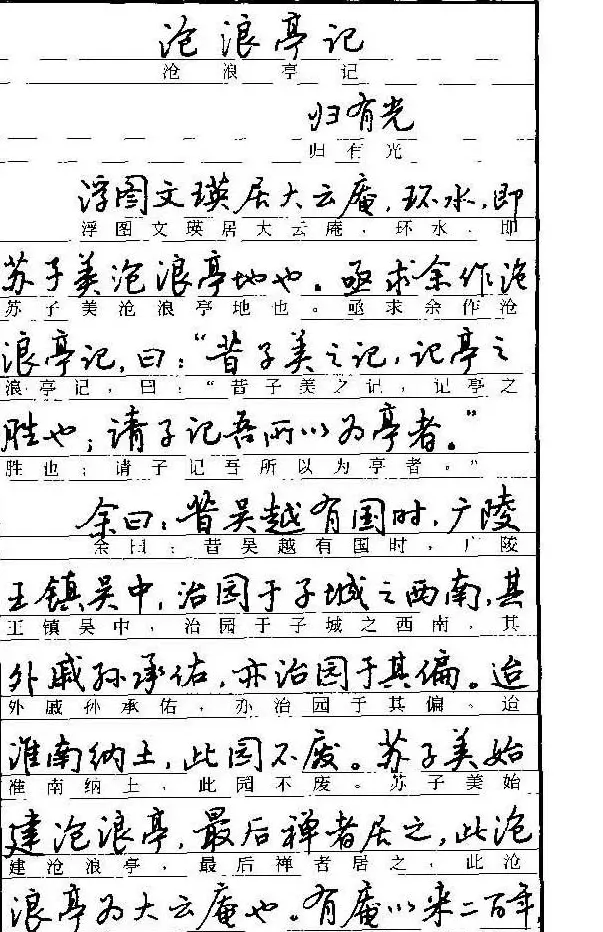 沧浪亭记
沧浪亭记
归有光
归有光
浮图文瑛居大云庵，环水，即
浮图文瑛居大云庵，环水，即
苏子美沧浪亭地也。亟求余作沧
苏子美沧浪亭地也。亟求余作沧
浪亭记，曰：“昔子美之记，记亭之
浪亭记，曰：“昔子美之记，记亭之
胜也；请子记吾所以为亭者。”
胜也；请子记吾所以为亭者。”
余曰：昔吴越有国时，广陵
余曰：昔吴越有国时，广陵
王镇吴中，治园于子城之西南，其
王镇吴中，治园于子城之西南，其
外戚孙承佑，亦治园于其偏。迨
外戚孙承佑，亦治园于其偏。迨
淮南纳土，此园不废。苏子美始
淮南纳土，此园不废。苏子美始
建沧浪亭，最后禅者居之，此沧
建沧浪亭，最后禅者居之，此沧
浪亭为大云庵也。有庵以来二百年，